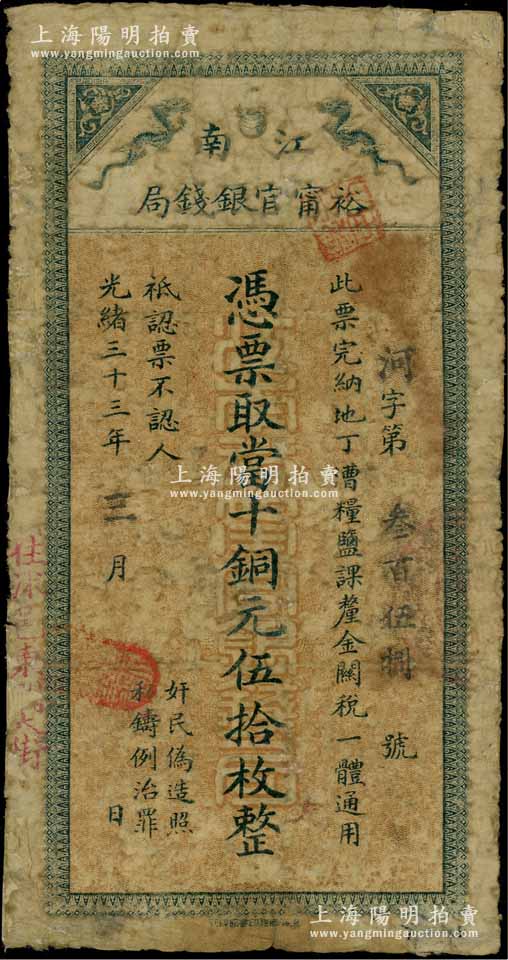 上海陽明拍賣
www.yangmingauction.com
江南
裕甯官銀錢局
河字第叁百伍捌號
此票完納地丁漕糧鹽課釐金關稅一體通用
憑票取當十銅元伍拾枚整
祗認票不認人
光緒三十三年三月日
奸民偽造照
私鑄例治罪
上海陽明拍賣
www.yangmingauction.com
上海陽明拍賣
www.yangmingauction.com